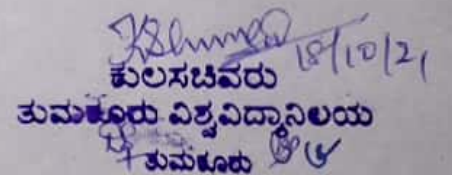 18/10/21
ಕುಲಸಚಿವರು
ತುಮಕೂರು ವಿಶ್ವವಿದ್ಯಾನಿಲಯ
ತುಮಕೂರು